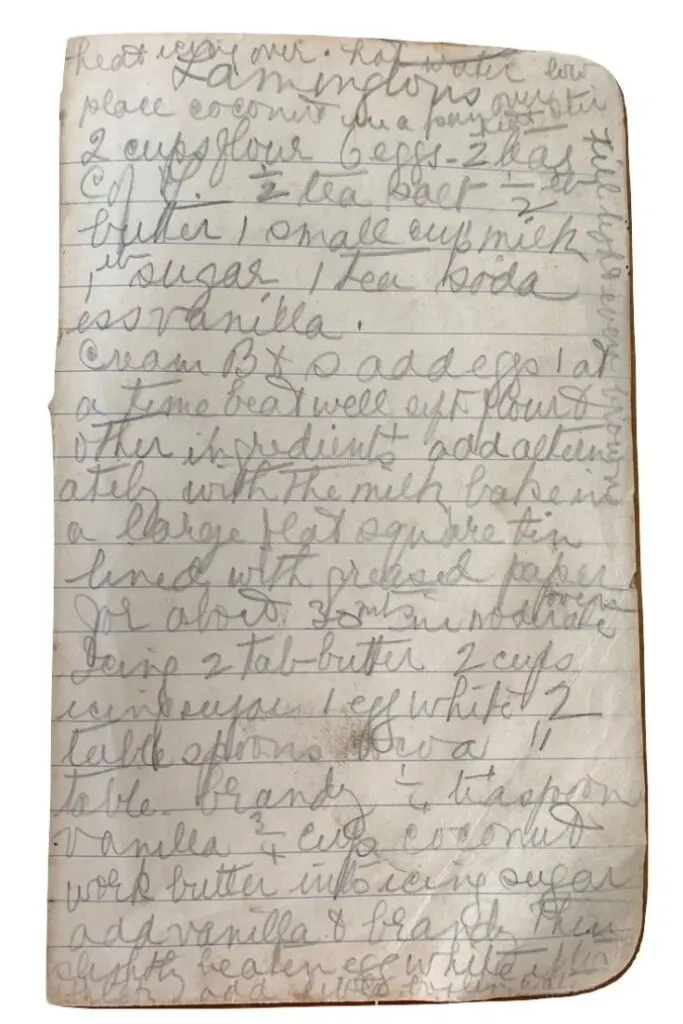 heat icing over hot water low
Lamingtons
place coconut in a pan over
2 cups flour 6 eggs - 2 teas
C of T. ½ tea salt ½ lb
butter 1 small cup milk
1 lb sugar 1 tea soda
ess vanilla.
Cream B & S add eggs 1 at
a time beat well sift flour &
other ingredients add altern
ately with the milk bake in
a large flat square tin
lined with greased paper
for about 30 mts in moderate
oven
Icing 2 tab butter 2 cups
icing sugar 1 egg white 2
tablespoons cocoa 1
table brandy ¼ teaspoon
vanilla ¾ cup coconut
work butter into icing sugar
add vanilla & brandy then
slightly beaten egg white
add
till light brown